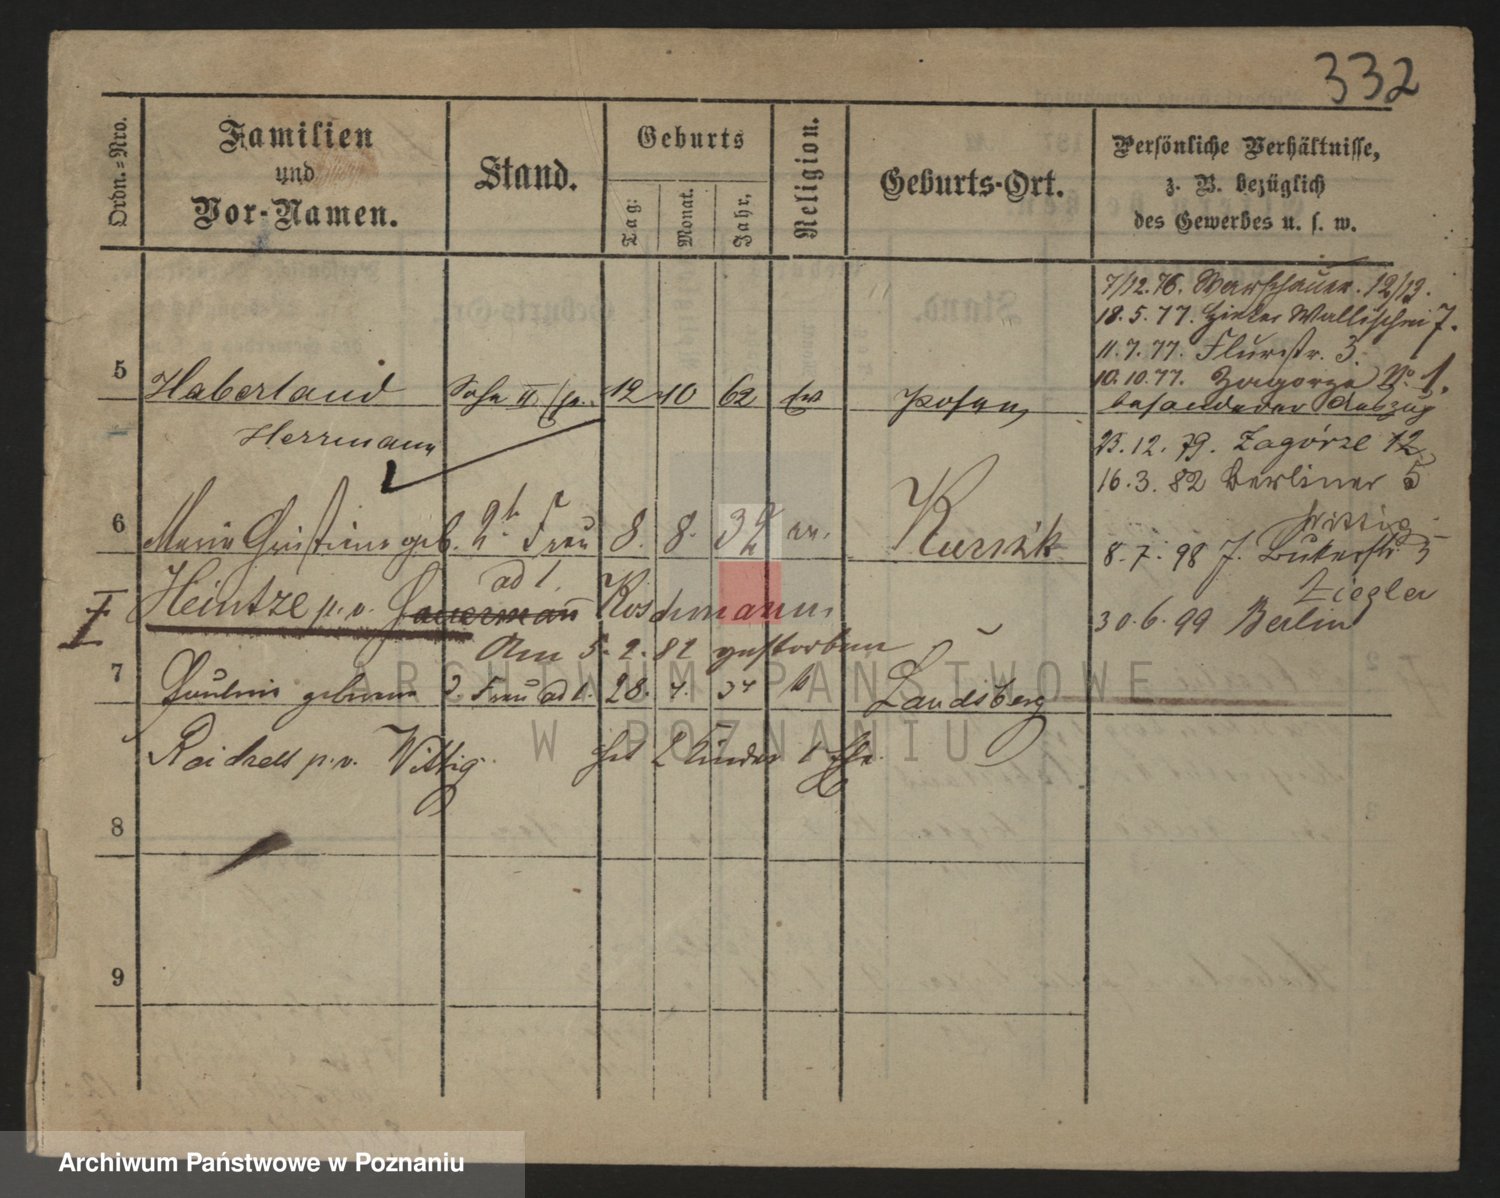 332
Ordn.-Nro.
Familien
und
Vor-Namen.
Stand.
Geburts
Tag:
Monat.
Jahr.
Religion.
Geburts-Ort.
Persönliche Verhältnisse,
z. B. bezüglich
des Gewerbes u. s. w.
7/12.76. Warschauer. 12/13.
18.5.77. Wallischei 7.
11.7.77. Flurstr. 3.
10.10.77. Zagorze No. 1.
besonderer Auszug
5 Haberland Sohn II 12 10 62 ev Posen
Herrmann
12. 79. Zagórze 12
16.3.82 Berliner 5
6 Marie Christine geb. 2t Frau 8. 8. 32 ev. Kurnik
ad 1.
Wittig
8.7.98 J. Bukerstr 5
Ziegler
I Heintze p. v. Koschmann
30.6.99 Berlin
Am 5.2.82 gestorben
7 Pauline geborene 3. Frau ad 1. 28. 7. 37 Landsberg
p. v. Wittig hat 2 Kinder 1. Ehe
8
9
ARCHIWUM PAŃSTWOWE
W POZNANIU
Archiwum Państwowe w Poznaniu